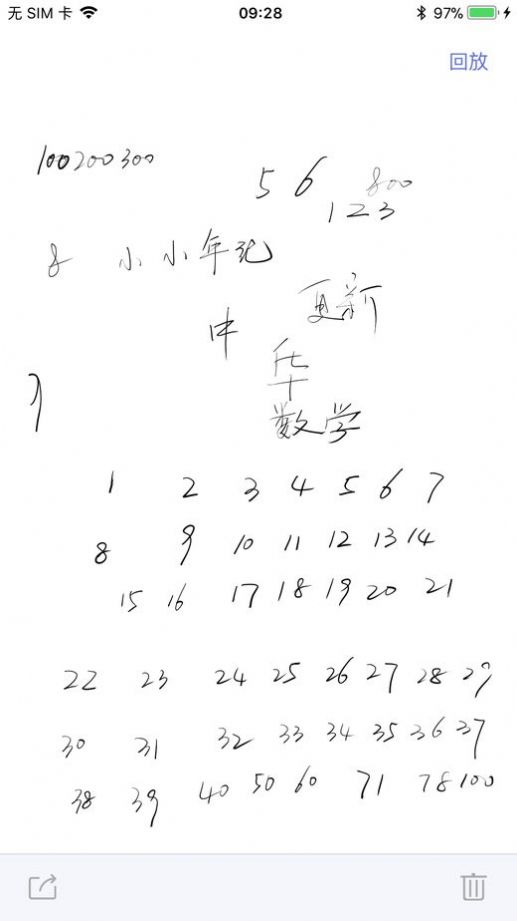 无 SIM 卡 09:28 97%
回放
100200300
5 6 800
1 2 3
8 小 小 年纪
更新
中
华
数学
1 2 3 4 5 6 7
8 9 10 11 12 13 14
15 16 17 18 19 20 21
22 23 24 25 26 27 28 29
30 31 32 33 34 35 36 37
38 39 40 50 60 71 78 100